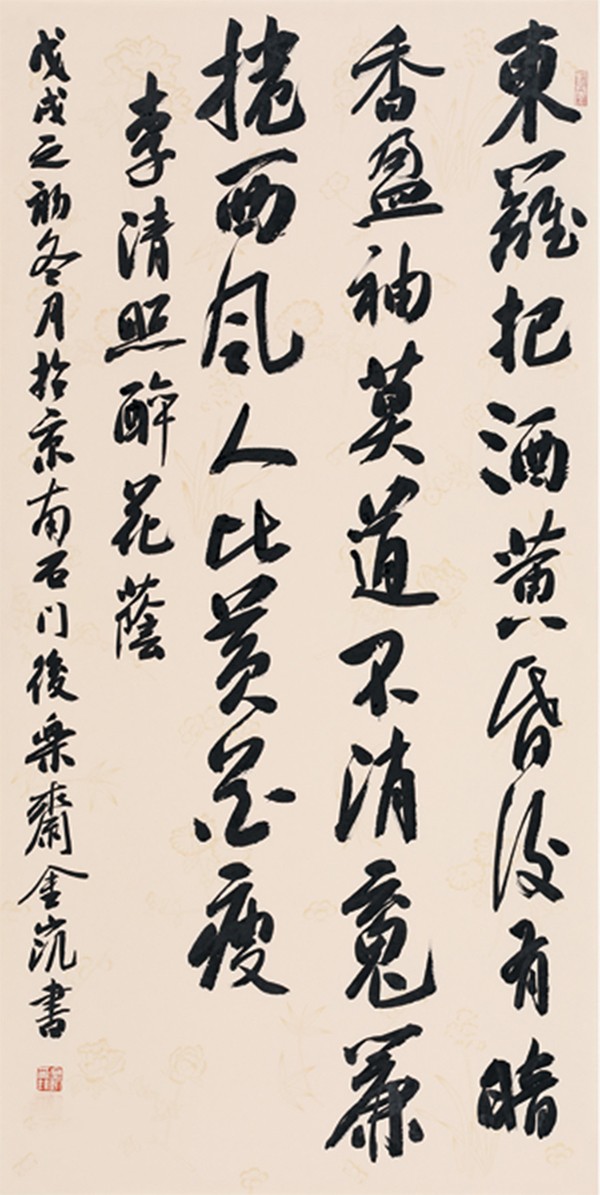 東籬把酒黄昏後有暗
香盈袖莫道不消魂簾
捲西風人比黄花瘦
李清照醉花蔭
戊戌之初冬月於京南石门後樂齋書